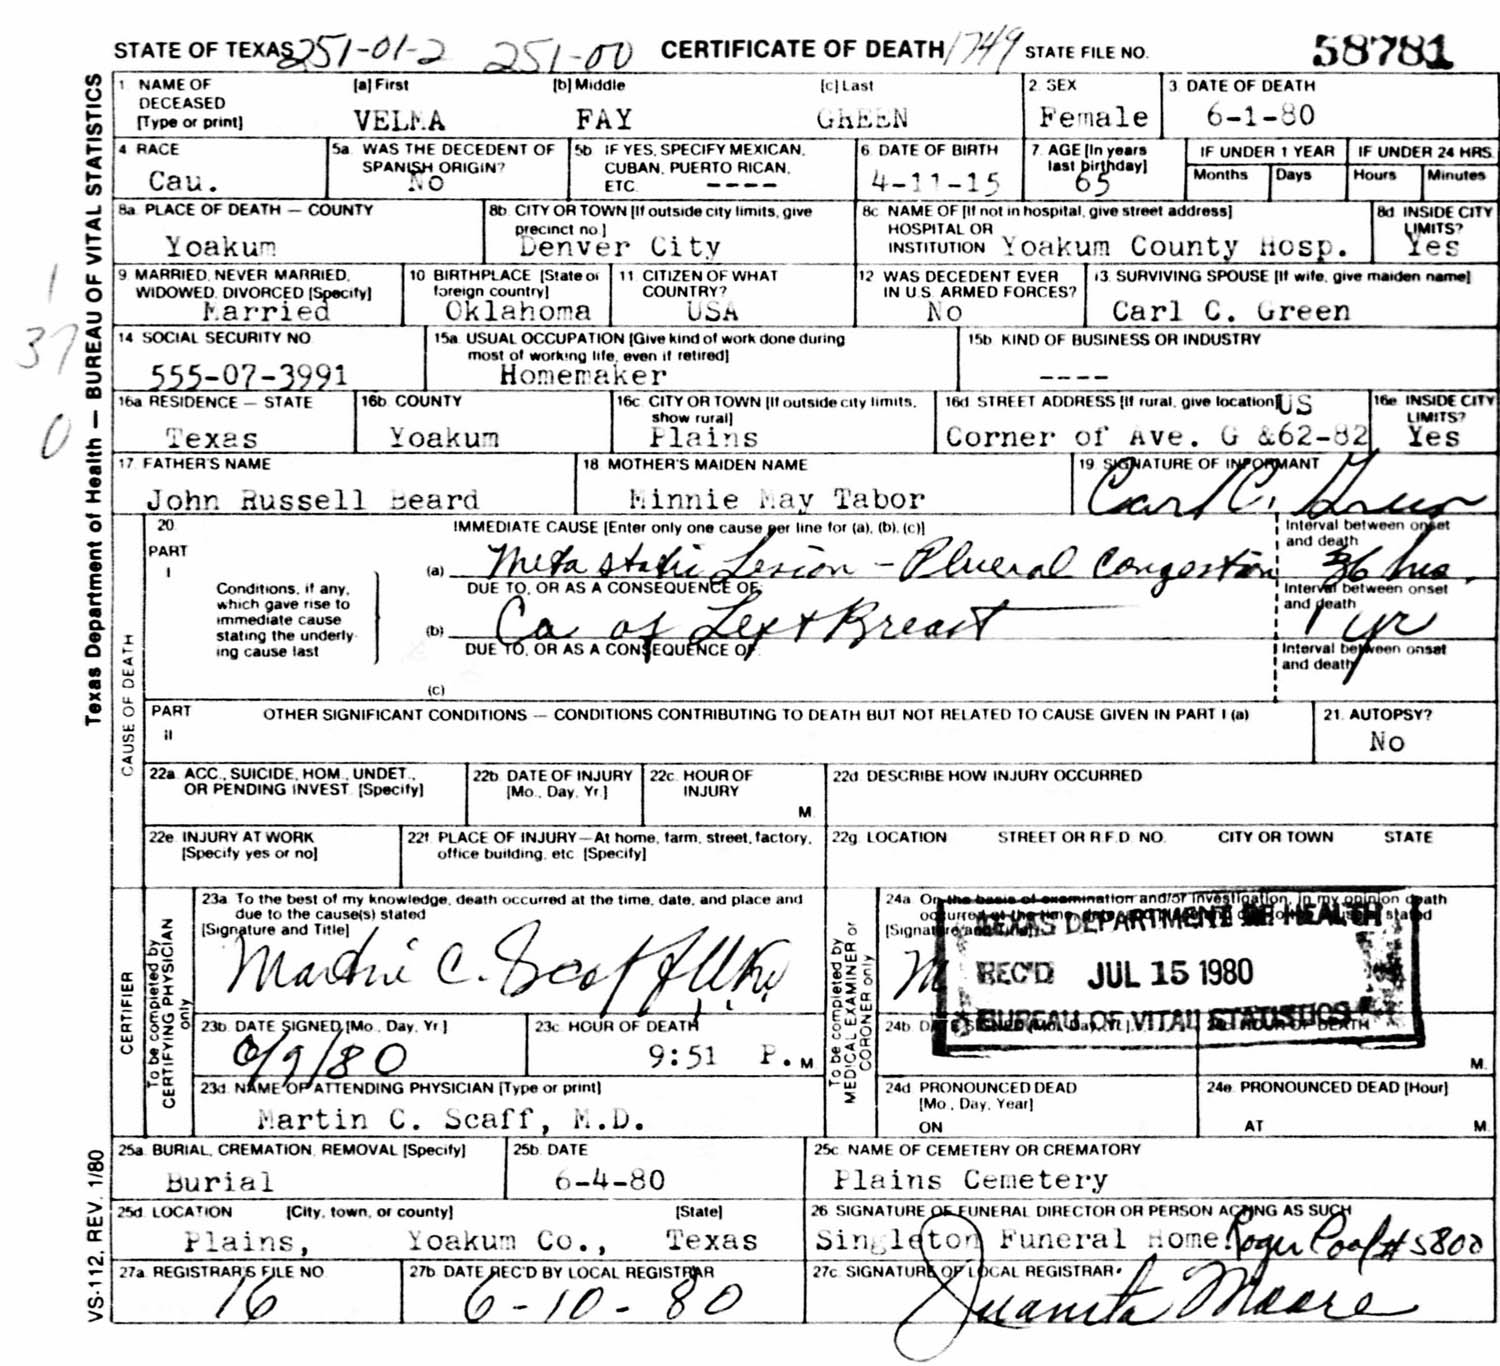 STATE OF TEXAS 251-01-2 251-00 CERTIFICATE OF DEATH 1749 STATE FILE NO. 58781
Texas Department of Health — BUREAU OF VITAL STATISTICS
1 NAME OF DECEASED [Type or print] [a] First [b] Middle [c] Last 2. SEX 3. DATE OF DEATH
VELMA FAY GREEN Female 6-1-80
4 RACE 5a. WAS THE DECEDENT OF SPANISH ORIGIN? 5b IF YES, SPECIFY MEXICAN, CUBAN, PUERTO RICAN, ETC. 6. DATE OF BIRTH 7. AGE [In years last birthday] IF UNDER 1 YEAR IF UNDER 24 HRS.
Months Days Hours Minutes
Cau. No ---- 4-11-15 65
8a. PLACE OF DEATH — COUNTY 8b. CITY OR TOWN [If outside city limits, give precinct no.] 8c NAME OF [If not in hospital, give street address] HOSPITAL OR INSTITUTION 8d INSIDE CITY LIMITS?
Yoakum Denver City Yoakum County Hosp. Yes
9 MARRIED, NEVER MARRIED, WIDOWED, DIVORCED [Specify] 10 BIRTHPLACE [State or foreign country] 11 CITIZEN OF WHAT COUNTRY? 12 WAS DECEDENT EVER IN U.S. ARMED FORCES? 13. SURVIVING SPOUSE [If wife, give maiden name]
Married Oklahoma USA No Carl C. Green
1
37
0
14 SOCIAL SECURITY NO 15a. USUAL OCCUPATION [Give kind of work done during most of working life, even if retired] 15b KIND OF BUSINESS OR INDUSTRY
555-07-3991 Homemaker ----
16a RESIDENCE — STATE 16b. COUNTY 16c. CITY OR TOWN [If outside city limits, show rural] 16d. STREET ADDRESS [If rural, give location] 16e INSIDE CITY LIMITS?
Texas Yoakum Plains Corner of Ave. G & US 62-82 Yes
17. FATHER'S NAME 18 MOTHER'S MAIDEN NAME 19. SIGNATURE OF INFORMANT
John Russell Beard Minnie May Tabor Carl C. Green
CAUSE OF DEATH
20. PART I IMMEDIATE CAUSE [Enter only one cause per line for (a), (b), (c)]
Conditions, if any, which gave rise to immediate cause stating the underlying cause last
(a) Metastatic Lesion - Plueral Congestion Interval between onset and death 36 hrs.
DUE TO, OR AS A CONSEQUENCE OF:
(b) Ca of Left Breast Interval between onset and death 1 yr
DUE TO, OR AS A CONSEQUENCE OF:
(c) Interval between onset and death
PART II OTHER SIGNIFICANT CONDITIONS — CONDITIONS CONTRIBUTING TO DEATH BUT NOT RELATED TO CAUSE GIVEN IN PART I (a) 21. AUTOPSY?
No
22a. ACC., SUICIDE, HOM., UNDET., OR PENDING INVEST. [Specify] 22b. DATE OF INJURY [Mo., Day, Yr.] 22c. HOUR OF INJURY M. 22d. DESCRIBE HOW INJURY OCCURRED
22e. INJURY AT WORK [Specify yes or no] 22f. PLACE OF INJURY—At home, farm, street, factory, office building, etc [Specify] 22g. LOCATION STREET OR R.F.D. NO. CITY OR TOWN STATE
CERTIFIER
To be completed by CERTIFYING PHYSICIAN only
23a To the best of my knowledge, death occurred at the time, date, and place and due to the cause(s) stated
[Signature and Title]
Martin C. Scaff M.D.
23b. DATE SIGNED [Mo., Day, Yr.] 23c. HOUR OF DEATH
6/9/80 9:51 P. M
23d. NAME OF ATTENDING PHYSICIAN [Type or print]
Martin C. Scaff, M.D.
To be completed by MEDICAL EXAMINER or CORONER only
24a On the basis of examination and/or investigation, in my opinion death occurred at the time, date, and place and due to the cause(s) stated
[Signature and Title]
TEXAS DEPARTMENT OF HEALTH
REC'D JUL 15 1980
BUREAU OF VITAL STATISTICS
24b. DATE SIGNED [Mo., Day, Yr.] 24c. HOUR OF DEATH M.
24d PRONOUNCED DEAD [Mo., Day, Year] ON 24e. PRONOUNCED DEAD [Hour] AT M.
25a. BURIAL, CREMATION, REMOVAL [Specify] 25b. DATE 25c. NAME OF CEMETERY OR CREMATORY
Burial 6-4-80 Plains Cemetery
25d. LOCATION [City, town, or county] [State] 26 SIGNATURE OF FUNERAL DIRECTOR OR PERSON ACTING AS SUCH
Plains, Yoakum Co., Texas Singleton Funeral Home Roger Pool #5800
27a. REGISTRAR'S FILE NO. 27b. DATE REC'D BY LOCAL REGISTRAR 27c. SIGNATURE OF LOCAL REGISTRAR
16 6-10-80 Juanita Moore
VS-112, REV. 1/80